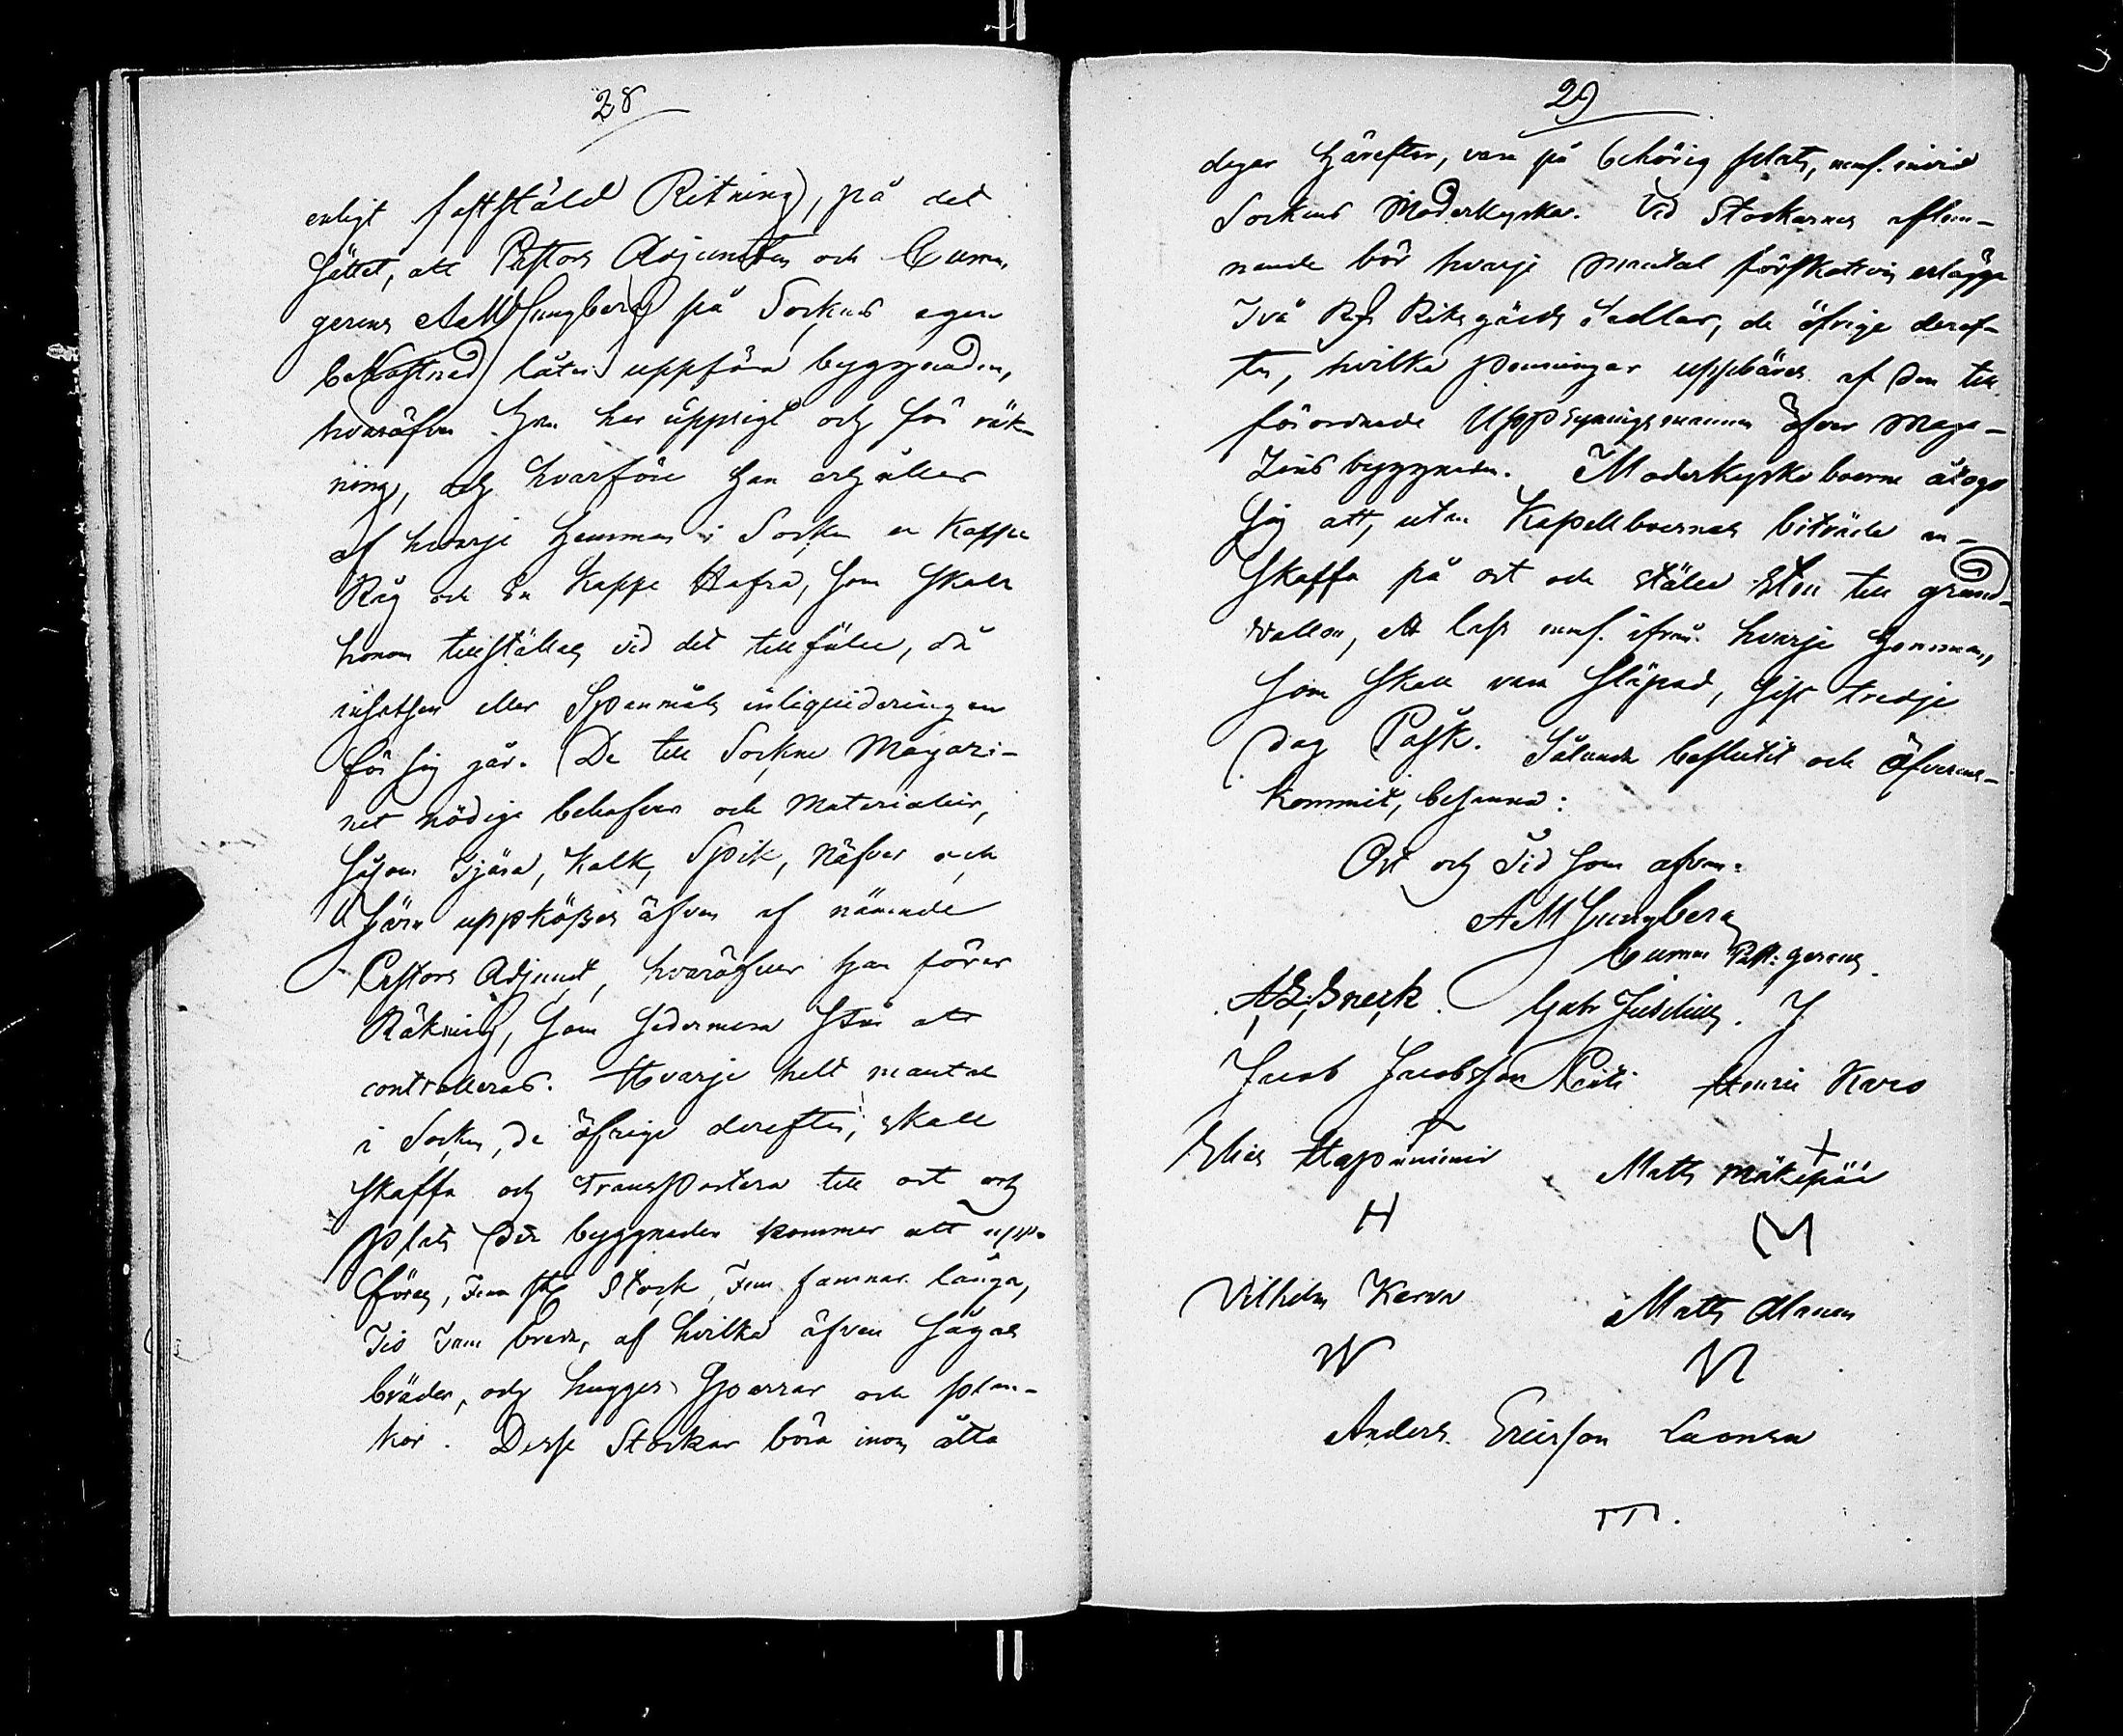 28
enligt fastställd Ritning, på det
sättet, att Pastors Adjuncten och Cura
gerens A M Ljungberg på Socknens egen
bekostnad låter uppföra byggnaden,
hvaröfver han har uppsigt och för räk-
ning, och hvarföre han erhåller
af hvarje Hemman i Socknen en Kappe
Råg och en Kappe Hafra, som skall
honom tillställas vid det tillfälle, då
insatsen eller Spanmåls inliquideringen
för sig går. De till Sockne Magazi-
net nödige behofver och Materialier,
såsom Tjära, Kalk, Spik, Näfver och
Järn uppköpes äfven af nämnde
Pastors Adjunct, hvaröfver han förer
Räkning, som sedermera skal
controlleras. Hvarje helt mantal
i Socknen, de öfrige derefter, skall
skaffa och transportera till ort och
plats der byggnaden kommer att upp-
föras, Fem st Stock, Fem famnar långa,
Tio Tum breda, af hvilka äfven sågas
bräder, och hugges Sparrar och plan-
kor. Desse Stockar böra inom åtta
29
dagar härefter, vara på behörig plats, neml. invid
Sockens Moderkyrka. Vid Stockarnes aflem-
nande bör hvarje mantal förskottvis erlägga
Två Rdr Riksgälds Sedlar, de öfrige deref-
ter, hvilka penningar uppbäres af den till
förordnade Uppsyningsmannen öfver Maga-
zins byggnaden. Moderkyrko boerne åtogo
sig att, utan Kapellboernes biträde an-
skaffa på ort och ställe Sten till grund-
vallen, ett lass neml. ifrån hvarje Hemman,
som skall vara släpad, sist tredje
dag Påsk. Sålunda beslutit och Öfverens-
kommit, besanna:
Ort och Tid som ofvan.
A M Ljungberg
Cura Past: gerens
A. E. Sneck. Gabr Juselius.
Jacob Jacobsson Henric Karo
Elias Haapaniemi Matts Mäkipää
H M
Vilhelm Kerva Matts Alanen
W M
Anders Ericsson Luonsa
m.